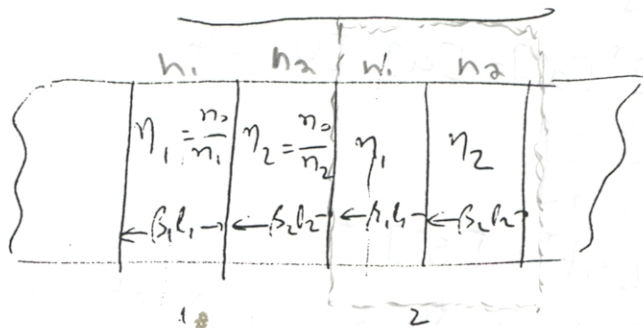 n₁ n₂ n₁ n₂
η₁ = η₀/n₁ η₂ = η₀/n₂ η₁ η₂
β₁l₁ β₂l₂ β₁l₁ β₂l₂
1 2